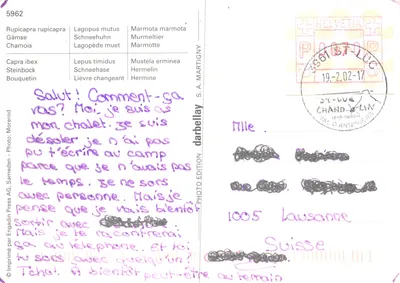 5962
Rupicapra rupicapra
Gämse
Chamois
Lagopus mutus
Schneehuhn
Lagopède muet
Marmota marmota
Murmeltier
Marmotte
Capra ibex
Steinbock
Bouquetin
Lepus timidus
Schneehase
Lièvre changeant
Mustela erminea
Hermelin
Hermine
Salut! Comment-ça
vas? Moi, je suis as
mon chalet. Je suis
désoler je n'ai pas
pu t'écrire au camp
parce que je n'avais pas
le temps. Je ne sors
avec personne. Mais je
pense que je vais bientôt
sortir avec
Mais je te raconterai
ça au téléphone. Et toi
tu sors avec quelqu'un?
Tchat. et bientôt peut-être au terrain
© Imprimé par Engadin Press AG, Samedan - Photo: Morerod
PHOTO EDITION darbellay S. A. MARTIGNY
HELVETIA
3961 ST-LUC
19.-2.02-17
ST-LUC
CHANDOLIN
VAL D'ANNIVIERS
Mlle
1005 Lausanne
Suisse